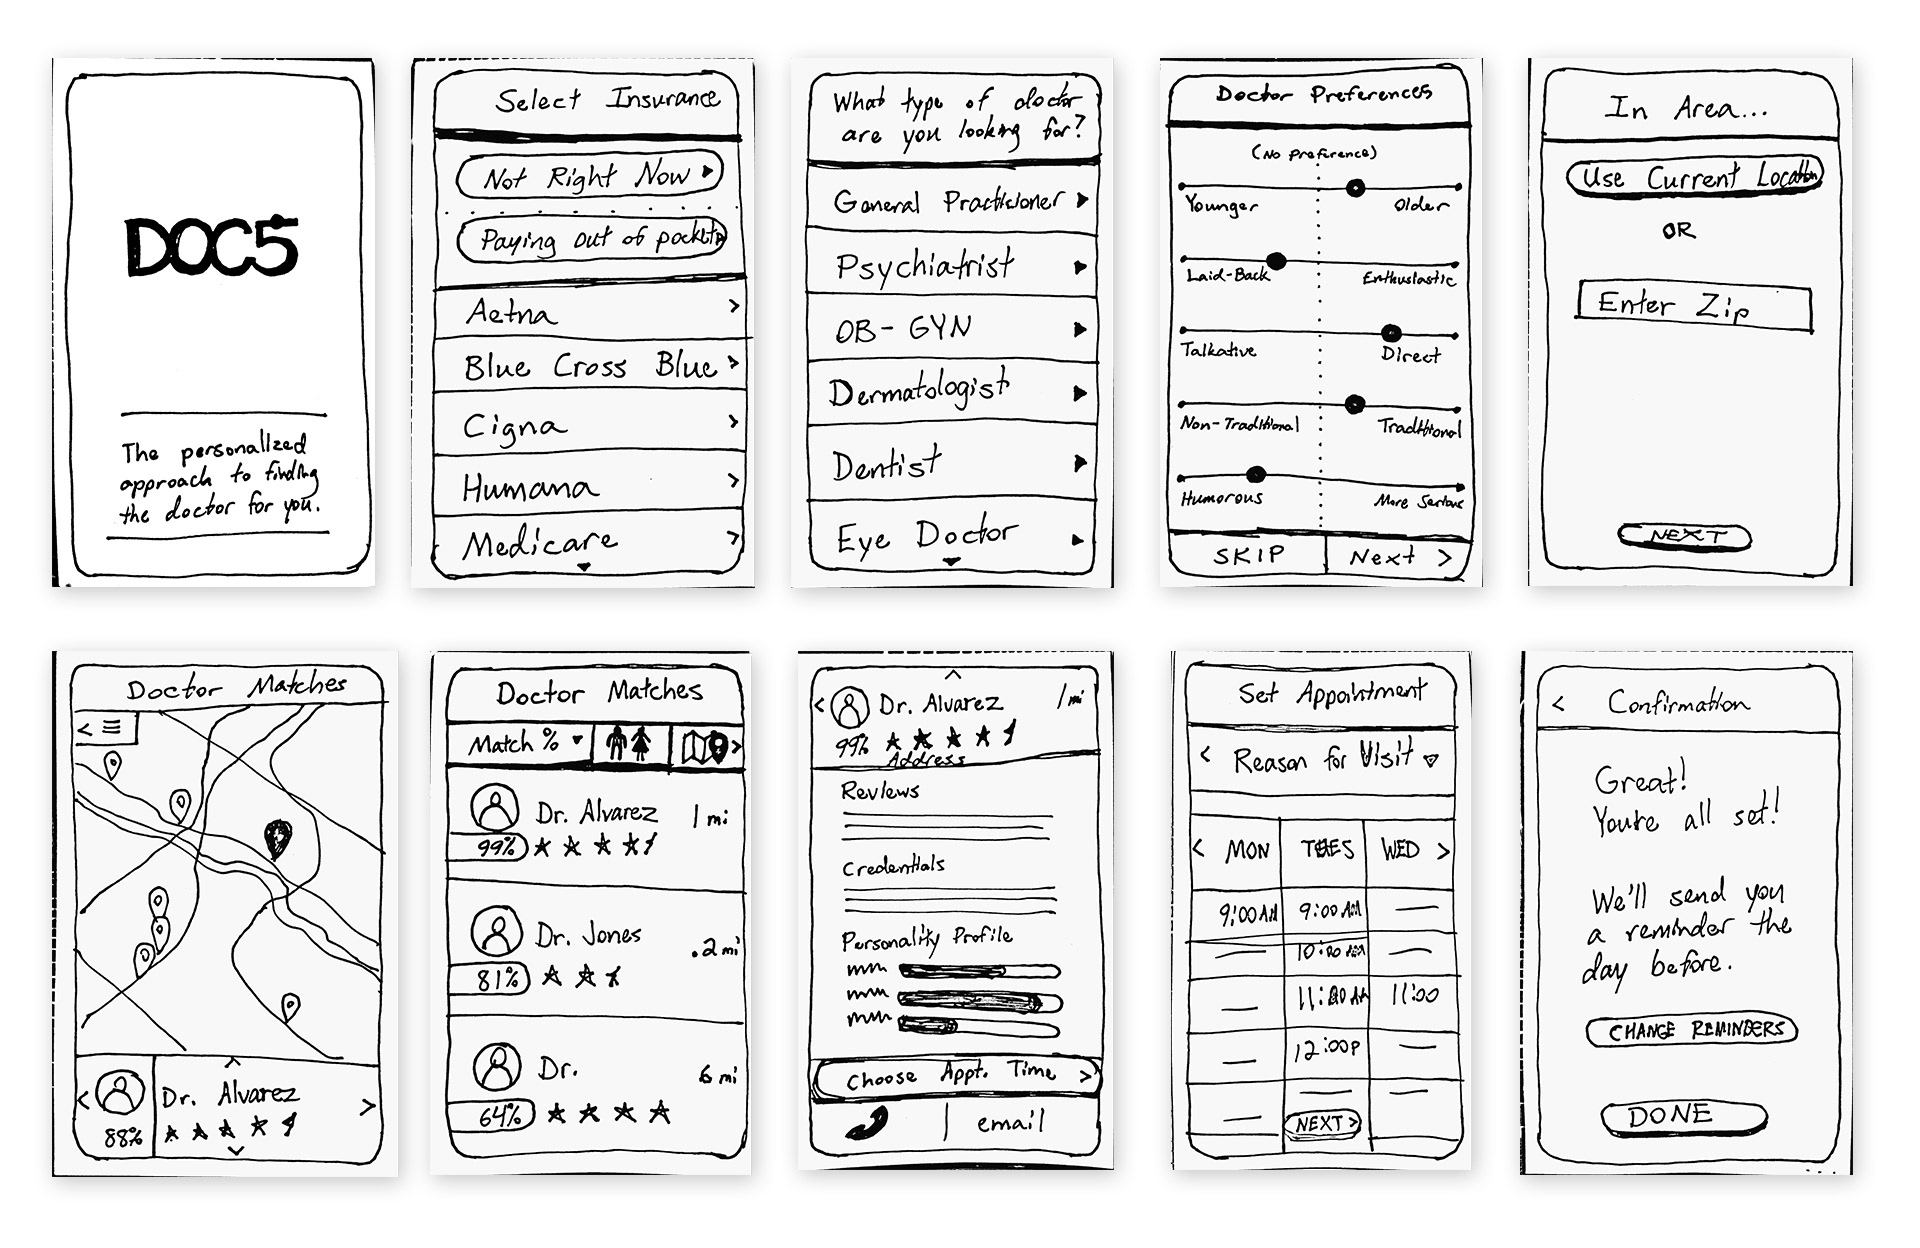 DOC5
The personalized
approach to finding
the doctor for you.
Select Insurance
Not Right Now
Paying out of pocket
Aetna
Blue Cross Blue
Cigna
Humana
Medicare
What type of doctor
are you looking for?
General Practicioner
Psychiatrist
OB-GYN
Dermatologist
Dentist
Eye Doctor
Doctor Preferences
(No preference)
Younger Older
Laid-Back Enthusiastic
Talkative Direct
Non-Traditional Traditional
Humorous More Serious
SKIP Next >
In Area...
Use Current Location
OR
Enter Zip
NEXT
Doctor Matches
<
Dr. Alvarez
< >
88%
Doctor Matches
Match % >
Dr. Alvarez 1 mi
99%
Dr. Jones .2 mi
81%
Dr. 6 mi
64%
< Dr. Alvarez 1 mi
99%
Address
Reviews
Credentials
Personality Profile
Choose Appt. Time >
email
Set Appointment
< Reason for Visit
< MON TUES WED >
9:00AM 9:00AM
10:00AM
11:00AM 11:00
12:00P
NEXT >
< Confirmation
Great!
You're all set!
We'll send you
a reminder the
day before.
CHANGE REMINDERS
DONE